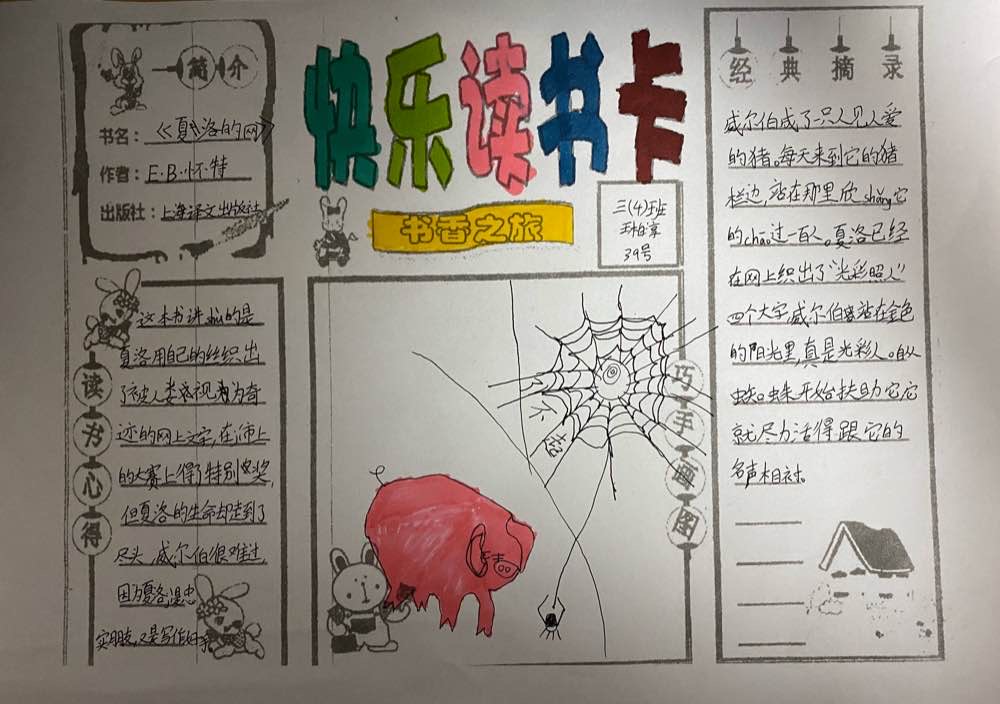 简介
书名：《夏洛的网》
作者：E·B·怀特
出版社：上海译文出版社
快乐读书卡
书香之旅
三(4)班
39号
读书心得
这本书讲shù的是
夏洛用自己的丝织出
了被人类视为奇
迹的网上文字，在
的大赛上得了特别奖，
但夏洛的生命却走到了
尽头，威尔伯很难过，
因为夏洛是忠
实朋友，又是写作好手
巧手画图
不起
经典摘录
威尔伯成了一只人见人爱
的猪。每天来到它的猪
栏边，站在那里欣shǎng它
的chāo过一百人。夏洛已经
在网上织出了“光彩照人”
四个大字威尔伯站在金色
的阳光里，真是光彩人。自从
蜘蛛开始扶助它，它
就尽力活得跟它的
名声相衬。